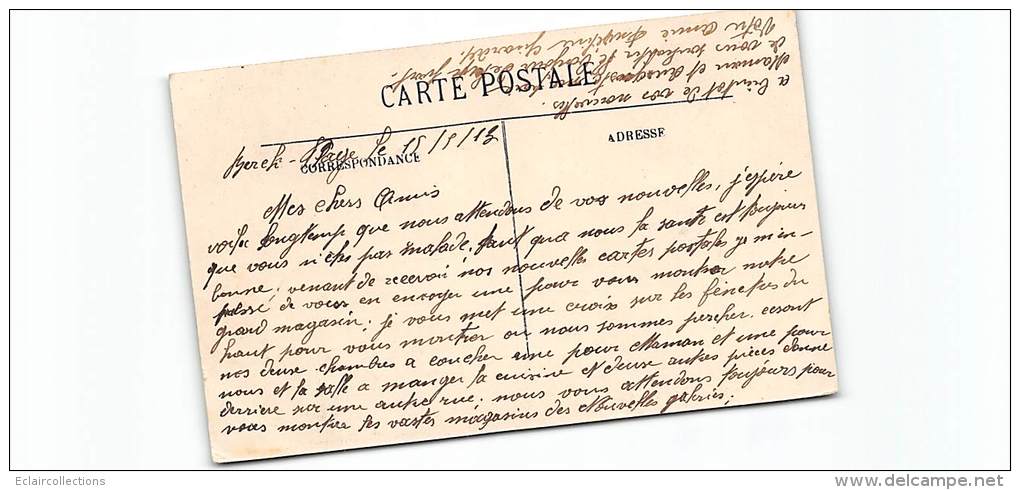 CARTE POSTALE
CORRESPONDANCE
ADRESSE
Berck-Plage le 15/5/13
Mes chers Amis
voila longtemp que nous attendons de vos nouvelles, j'espère
que vous n'êtes pas malade. quant qua nous la sante est toujour
bonne; venant de recevoir nos nouvelles cartes postales je m'en-
de vous en envoyer une pour vous montrer notre
grand magasin; je vous met une croix sur les fenêtres du
haut pour vous montrer ou nous sommes percher. ce sont
nos deuse chambres a coucher une pour Maman et une pour
nous et la salle a manger la cuisine et deuse autres pièces donne
derriere sur une autre rue. nous vous attendons toujours pour
vous montrer les vastes magasins des Nouvelles galeries;
a bientot de vos nouvelles.
Maman et
de vous
Votre amie
Eclaircollections
www.delcampe.net